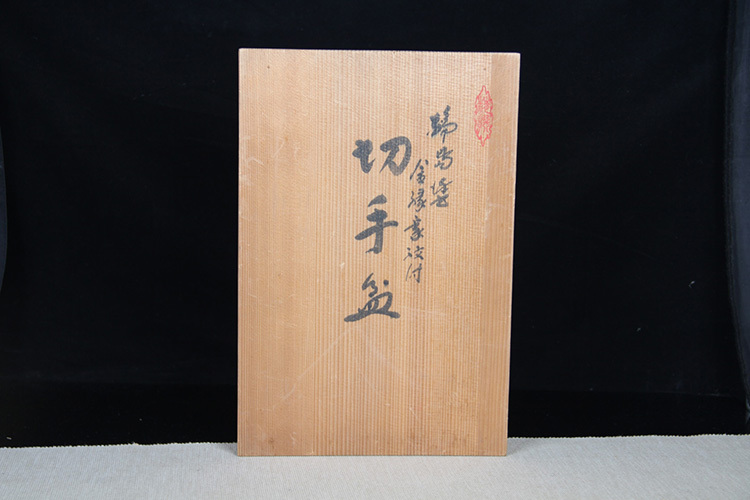 輪島塗
金縁家紋付
切手盆